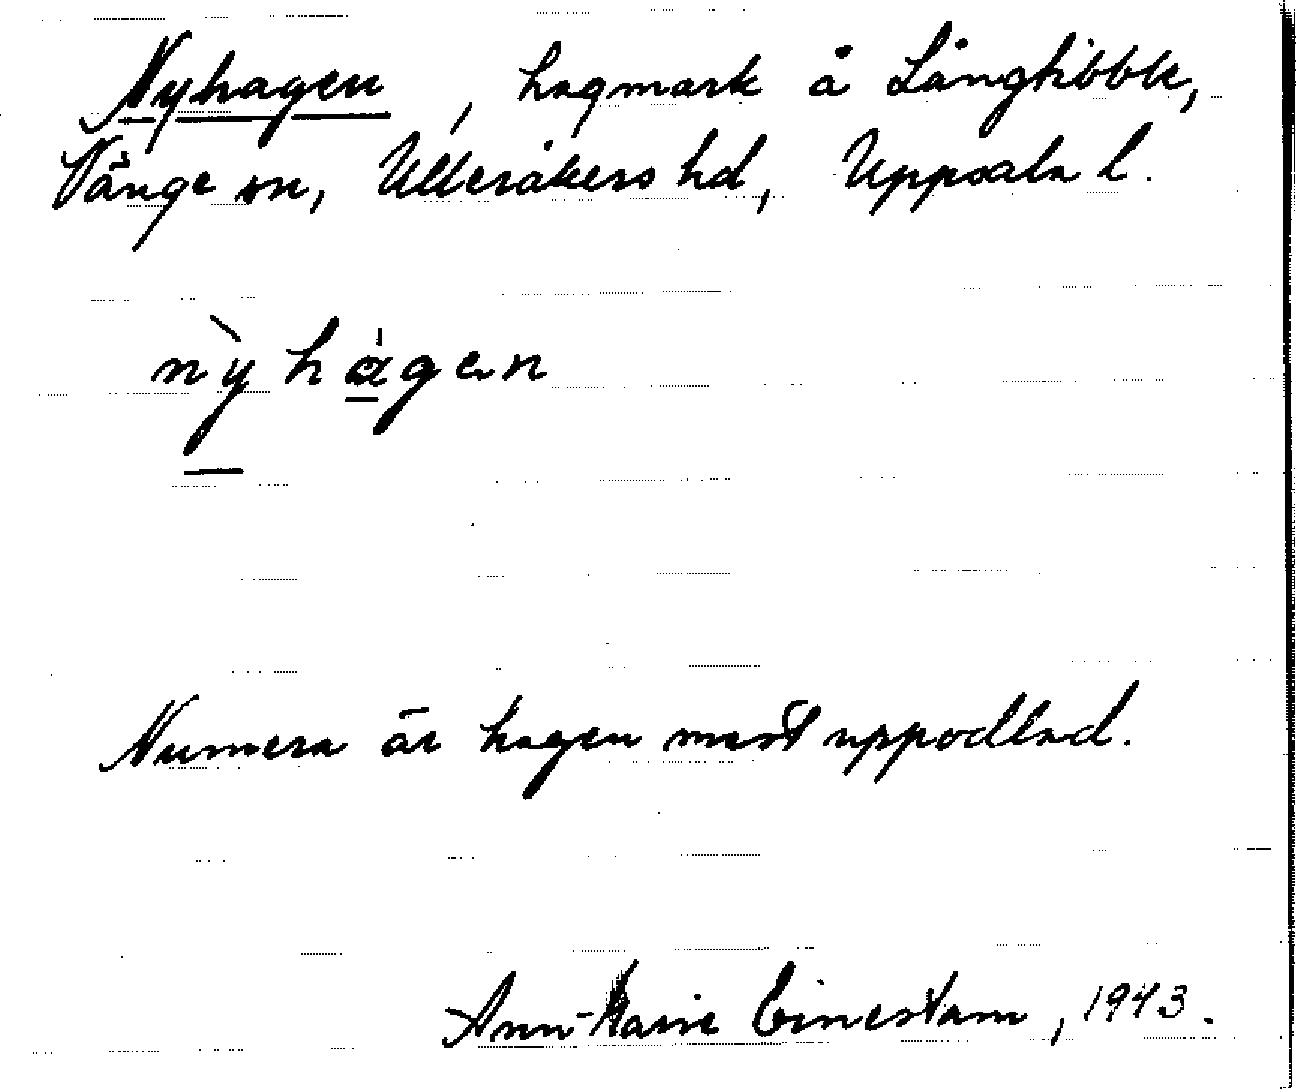 Nyhagen, hagmark å Långtibble,
Vänge sn, Ulleråkers hd, Uppsala l.
nỳhágen
Numera är hagen mest uppodlad.
Ann-Marie Einestam, 1943.